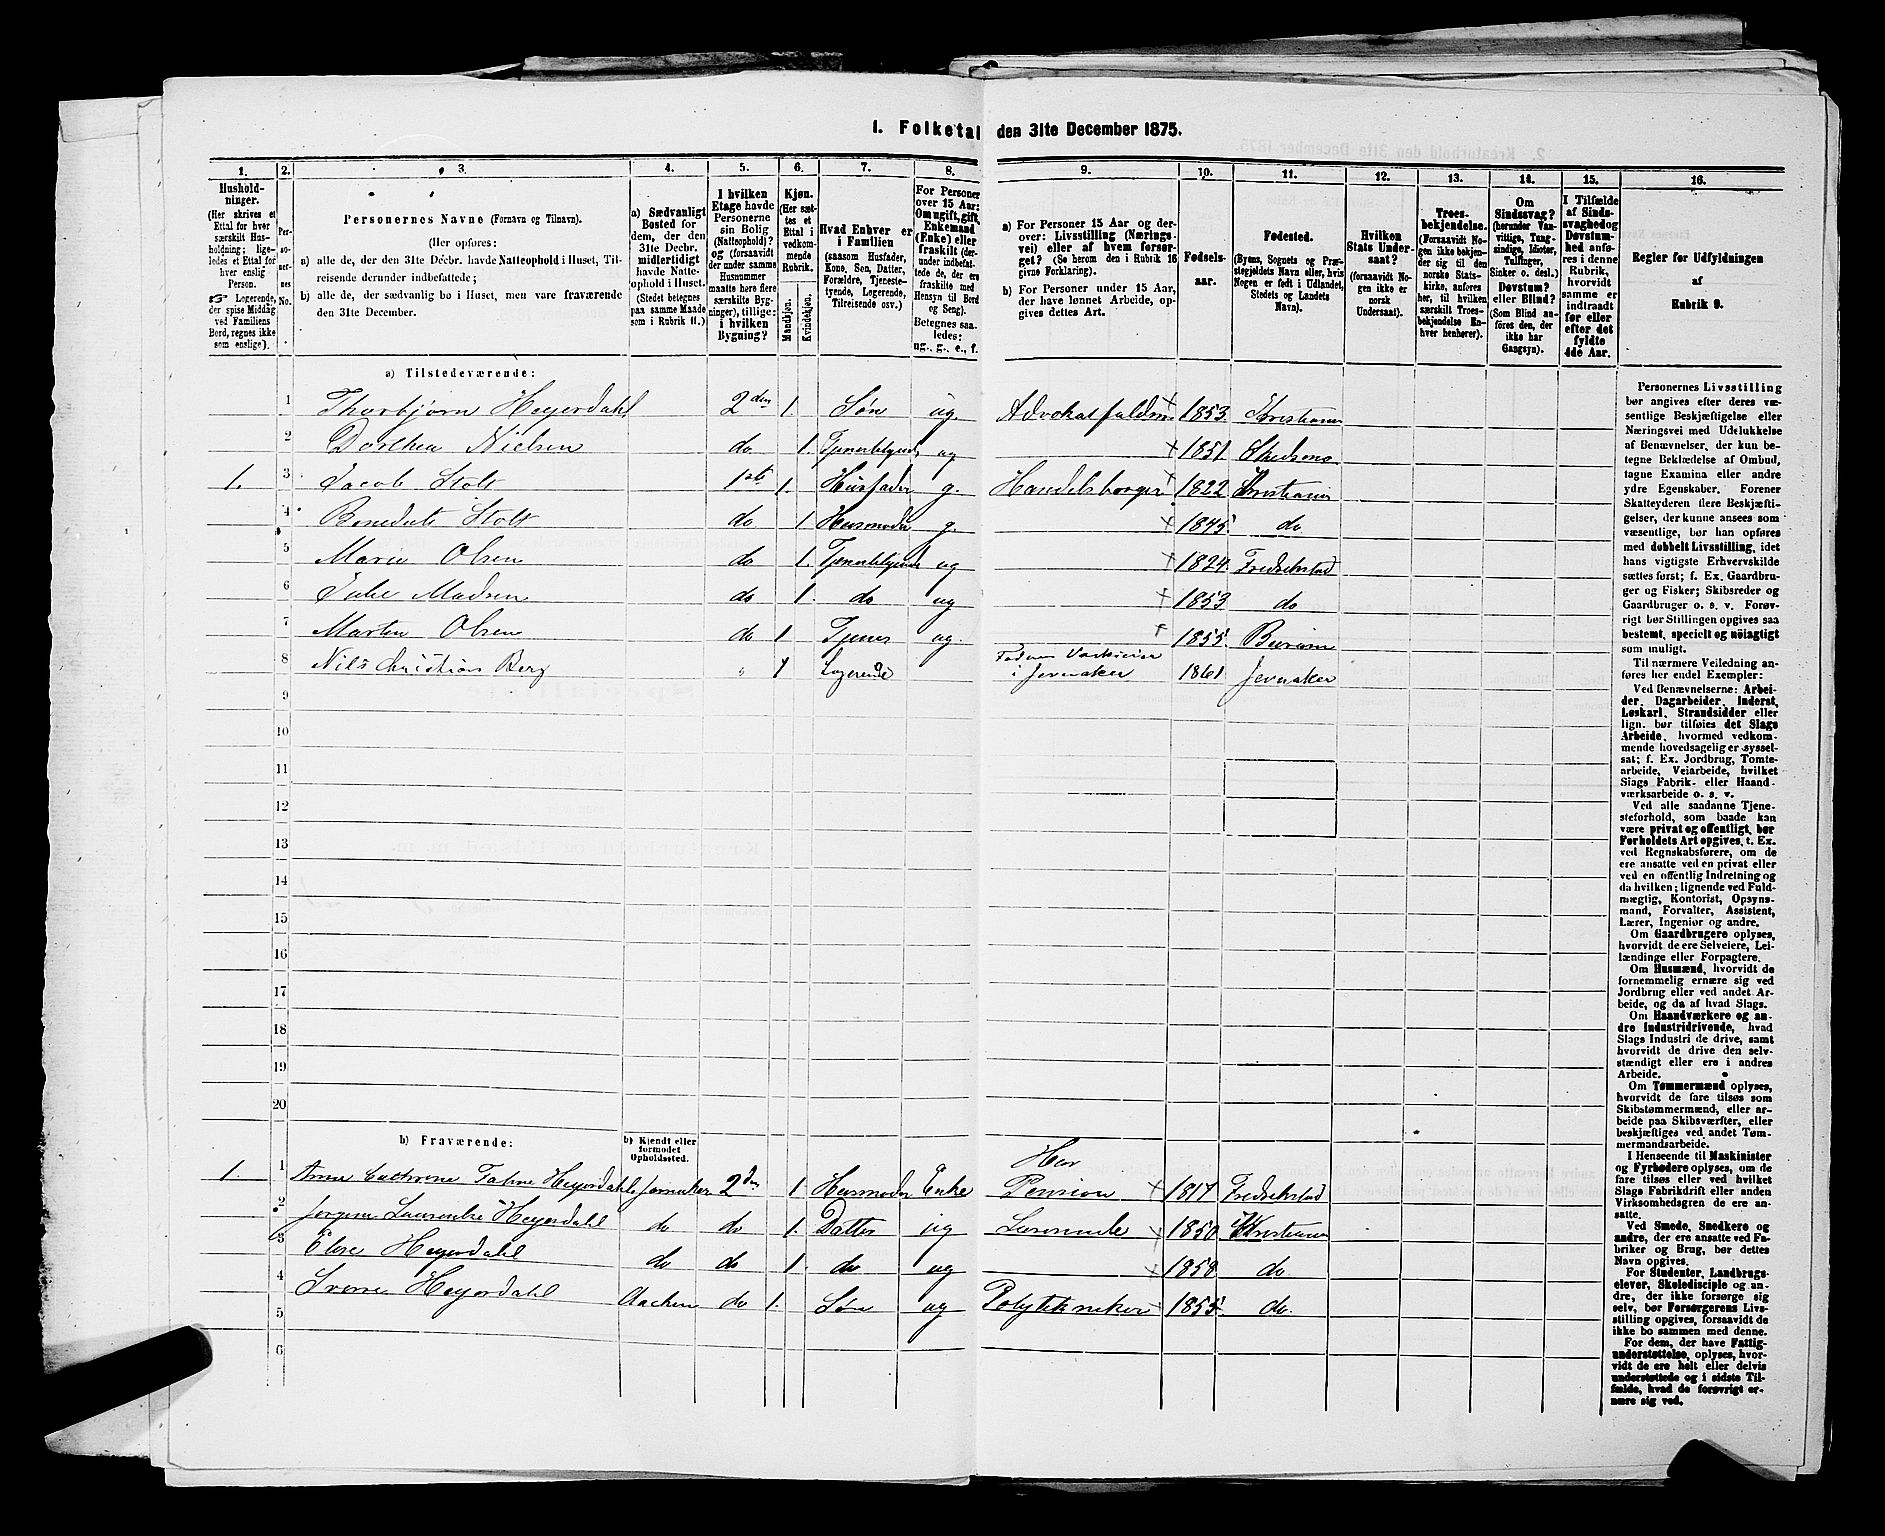 I. Folketal den 31te December 1875.
1. 2. 3. 4. 5. 6. 7. 8. 9. 10. 11. 12. 13. 14. 15. 16.
Husholdninger.
(Her skrives et
Ettal for hver
særskilt Husholdning;
ligeledes et Ettal for
hver enslig
Person.
☞ Logerende,
der spise Middag
ved Familiens
Bord, regnes ikke
som enslige).
Personernes No.
Personernes Navne (Fornavn og Tilnavn).
(Her opføres:
a) alle de, der den 31te Decbr. havde Natteophold i Huset, Tilreisende derunder indbefattede;
b) alle de, der sædvanlig bo i Huset, men vare fraværende
den 31te December.
a) Sædvanligt
Bosted for
dem, der den
31te Decbr.
midlertidigt
havde Natteophold i Huset.
(Stedet betegnes
paa samme Maade
som i Rubrik 11.)
I hvilken
Etage havde
Personerne
sin Bolig
(Natteophold)?
og (forsaavidt
der under samme
Husnummer
maatte høre flere
særskilte Bygninger), tillige:
i hvilken
Bygning?
Kjøn.
(Her sættes et
Ettal i
vedkommende
Rubrik.
Mandkjøn.
Kvindekjøn.
Hvad Enhver er
i Familien
(saasom Husfader,
Kone, Søn, Datter,
Forældre, Tjenestetyende, Logerende,
Tilreisende osv.)
For Personer
over 15 Aar:
Om ugift, gift,
Enkemand
(Enke) eller
fraskilt
Betegnes saaledes:
ug., g., e., f.
a) For Personer 15 Aar og derover: Livsstilling (Næringsvei) eller af hvem forsørget? (Se herom den i Rubrik 16
givne Forklaring).
b) For Personer under 15 Aar,
der have lønnet Arbeide, opgives dettes Art.
Fødselsaar.
Fødested.
(Byens, Sognets og Præstegjeldets Navn eller, hvis
Nogen er født i Udlandet,
Stedets og Landets
Navn).
Hvilken
Stats Undersaat?
(forsaavidt Nogen ikke er
norsk
Undersaat).
Troesbekjendelse.
(Forsaavidt Nogen ikke bekjender sig til den
norske Statskirke, anføres
her, til hvilken
særskilt Troesbekjendelse Enhver henhører).
Om
Sindssvag?
(herunder Vanvittige, Tungsindige, Idioter,
Tullinger,
Sinker o. desl.)
Døvstum?
eller Blind?
(Som Blind anføres den, der
ikke har
Gangsyn).
I Tilfælde
af Sindssvaghed og
Døvstumhed anføres i denne
Rubrik,
hvorvidt
samme er
indtraadt
før eller
efter det
fyldte
4de Aar.
Regler for Udfyldningen
af
Rubrik 9.
a) Tilstedeværende:
1 Thorbjørn Heyerdahl 2den 1. Søn ug. Advokatfuldm × 1853. Kristiania
2 Dorthea Nielsen do 1. ug × 1851. Skedsmo
1. 3 Jacob Stolt 1ste 1. Husfader g. Handelsborger × 1822 Christiania
4 Benedicte Stolt do 1 Husmoder g. × 1845. do
5 Marie Olsen do 1. ug × 1824. Fredrikstad
6 Julie Madsen do 1. do ug × 1853 do
7 Marten Olsen do 1 Tjener ug. × 1855.
8 Nils Christian Berg " 1 Logerende i Jevnaker 1861 Jevnaker
9
10
11
12
13
14
15
16
17
18
19
20
b) Fraværende:
b) Kjendt eller
formodet
Opholdssted.
1. 1 Heyerdahl Jevnaker 2den 1 Husmoder Enke Har Pension × 1817 Fredrikstad
2 Heyerdahl do do 1. Datter ug × 1850 Christiania
3 Heyerdahl do do 1 do ug × 1858 do
4 Sverre Heyerdahl Aachen do 1. Søn ug Polytekniker × 1855. do.
5
6
Personernes Livsstilling
bør angives efter deres væsentlige Beskjæftigelse eller
Næringsvei med Udelukkelse
af Benævnelser, der kun betegne Beklædelse af Ombud,
tagne Examina eller andre
ydre Egenskaber. Forener
Skatteyderen flere Beskjæftigelser, der kunne ansees som
væsentlige, bør han opføres
med dobbelt Livsstilling, idet
hans vigtigste Erhvervskilde
sættes først; f. Ex. Gaardbruger og Fisker; Skibsreder og
Gaardbruger o. s. v. Forøvrigt bør Stillingen opgives saa
bestemt, specielt og nøiagtigt
som muligt.
Til nærmere Veiledning anføres her endel Exempler:
Ved Benævnelserne: Arbeider, Dagarbeider, Inderst,
Løskarl, Strandsidder eller
lign. bør tilføies det Slags
Arbeide, hvormed vedkommende hovedsagelig er sysselsat; f. Ex. Jordbrug, Tomtearbeide, Veiarbeide, hvilket
Slags Fabrik- eller Haandværksarbeide o. s. v.
Ved alle saadanne Tjenesteforhold, som baade kan
være privat og offentligt, bør
Forholdets Art opgives, t. Ex.
ved Regnskabsførere, om de
ere ansatte ved en privat eller
ved en offentlig Indretning og
da hvilken; lignende ved Fuldmægtig, Kontorist, Opsynsmand, Forvalter, Assistent,
Lærer, Ingeniør og andre.
Om Gaardbrugere oplyses,
hvorvidt de ere Selveiere, Leilændinge eller Forpagtere.
Om Husmænd, hvorvidt de
fornemmelig ernære sig ved
Jordbrug eller ved andet Arbeide, og da af hvad Slags.
Om Haandværkere og andre Industridrivende, hvad
Slags Industri de drive, samt
hvorvidt de drive den selvstændigt eller ere i andres
Arbeide.
Om Tømmermænd oplyses,
hvorvidt de fare tilsøs som
Skibstømmermænd, eller arbeide paa Skibsværfter, eller
beskjæftiges ved andet Tømmermandsarbeide.
I Henseende til Maskinister
og Fyrbødere oplyses, om de
fare tilsøs eller ved hvilket
Slags Fabrikdrift eller anden
Virksomhedsgren de ere ansatte.
Ved Smede, Snedkere og
andre, der ere ansatte ved Fabriker og Brug, bør dettes
Navn opgives.
For Studenter, Landbrugselever, Skoledisciple og andre, der ikke forsørge sig
selv, bør Forsørgerens Livsstilling opgives, forsaavidt de
ikke bo sammen med denne.
For dem, der have Fattigunderstøttelse, oplyses, hvorvidt de ere helt eller delvis
understøttede og i sidste Tilfælde, hvad de forøvrigt ernære sig ved.